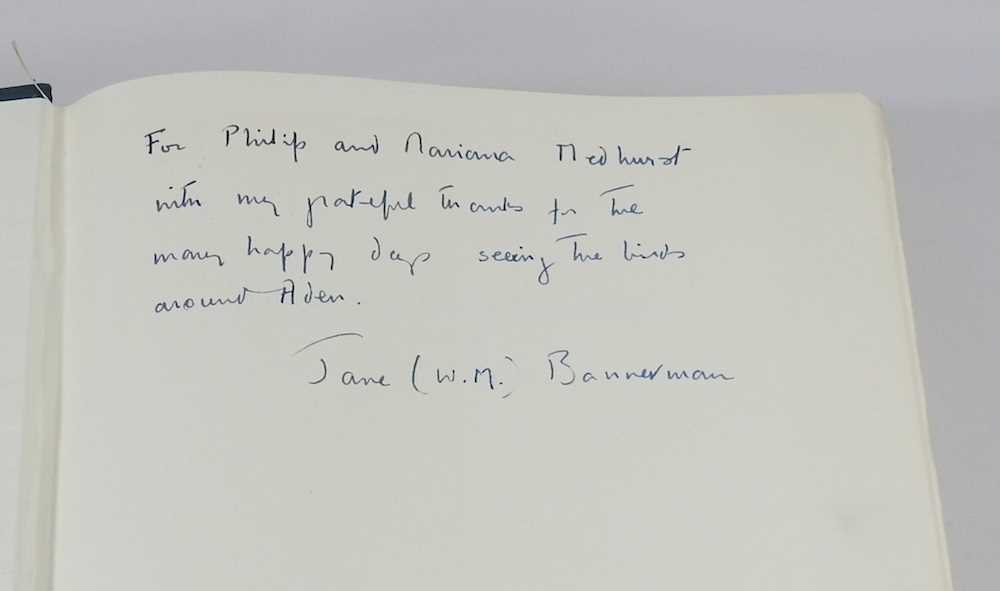 For Philip and Mariana Medhurst
with my grateful thanks for the
many happy days seeing the birds
around Aden.
Jane (W.M.) Bannerman